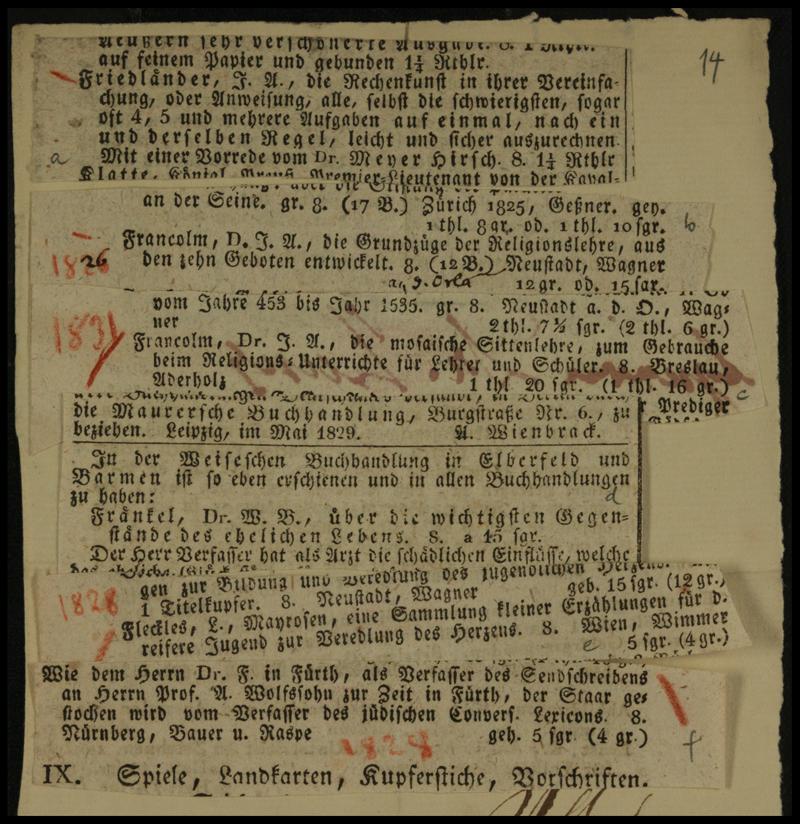 Aeußern sehr verschönerte Ausgabe. 8.
auf feinem Papier und gebunden 1½ Rthlr.
14
Friedländer, J. A., die Rechenkunst in ihrer Vereinfa-
chung, oder Anweisung, alle, selbst die schwierigsten, sogar
oft 4, 5 und mehrere Aufgaben auf einmal, nach ein
und derselben Regel, leicht und sicher auszurechnen.
Mit einer Vorrede vom Dr. Meyer Hirsch. 8. 1½ Rthlr
a
Klatte, Königl. Preuß. Premier-Lieutenant von der Kaval-
an der Seine. gr. 8. (17 B.) Zürich 1825, Geßner. geh.
1 thl. 8 gr. od. 1 thl. 10 sgr.
b
Francolm, D. J. A., die Grundzüge der Religionslehre, aus
1826
den zehn Geboten entwickelt. 8. (12 B.) Neustadt, Wagner
a. d. Orla 12 gr. od. 15 sgr.
vom Jahre 453 bis Jahr 1535. gr. 8. Neustadt a. d. O., Wag-
ner 2 thl. 7½ sgr. (2 thl. 6 gr.)
1831
Francolm, Dr. J. A., die mosaische Sittenlehre, zum Gebrauche
beim Religions-Unterrichte für Lehrer und Schüler. 8. Breslau,
Aderholz 1 thl 20 sgr. (1 thl. 16 gr.)
c
die Maurersche Buchhandlung, Burgstraße Nr. 6., zu
r Prediger
beziehen. Leipzig, im Mai 1829. A. Wienbrack.
In der Weiseschen Buchhandlung in Elberfeld und
Barmen ist so eben erschienen und in allen Buchhandlungen
zu haben:
d
Fränkel, Dr. W. B., über die wichtigsten Gegen-
stände des ehelichen Lebens. 8. a 15 sgr.
Der Herr Verfasser hat als Arzt die schädlichen Einflüsse, welche
gen zur Bildung und Veredlung des jugendlichen Herzens.
1 Titelkupfer. 8. Neustadt, Wagner geb. 15 sgr. (12 gr.)
1828
Fleckles, L., Mayrosen, eine Sammlung kleiner Erzählungen für d.
reifere Jugend zur Veredlung des Herzens. 8. Wien, Wimmer
e 5 sgr. (4 gr.)
Wie dem Herrn Dr. F. in Fürth, als Verfasser des Sendschreibens
an Herrn Prof. A. Wolfssohn zur Zeit in Fürth, der Staar ge-
stochen wird vom Verfasser des jüdischen Convers. Lexicons. 8.
Nürnberg, Bauer u. Raspe geh. 5 sgr (4 gr.)
1828
f
IX. Spiele, Landkarten, Kupferstiche, Vorschriften.